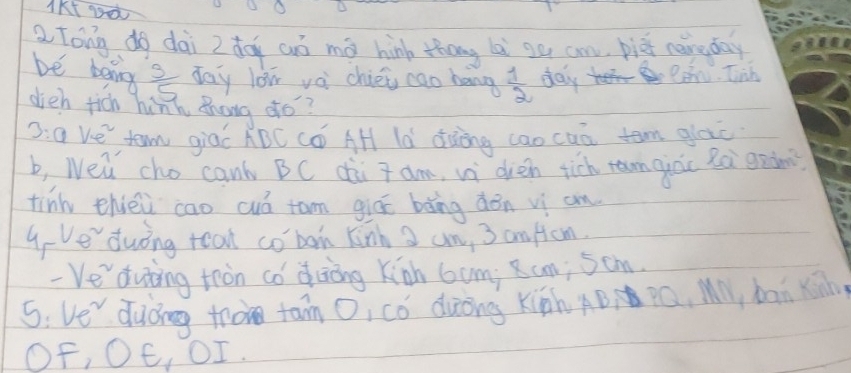 2 Tổng độ dài 2 đáy của mỗ hình thang là 24 cm. biết rằng đáy
bé bằng 3/5 đáy lớn và chiều cao bằng 1/2 đáy lớn. Tính
diện tích hình thang đó?
3: a Vẽ tam giác ABC có AH là đường cao của tam giác.
b, Nếu cho cạnh BC dài 7 dm, và diện tích tam giác là
tính chiều cao của tam giác bằng đơn vị cm.
4, - Vẽ đường tròn có bán kính 2 cm, 3 cm, 4 cm.
- Vẽ đường tròn có đường kính 6cm; 8 cm; 5 cm.
5. Vẽ đường tròn tâm O, có đường kính AB, PQ, MN, bán kính
OF, OE, OI.